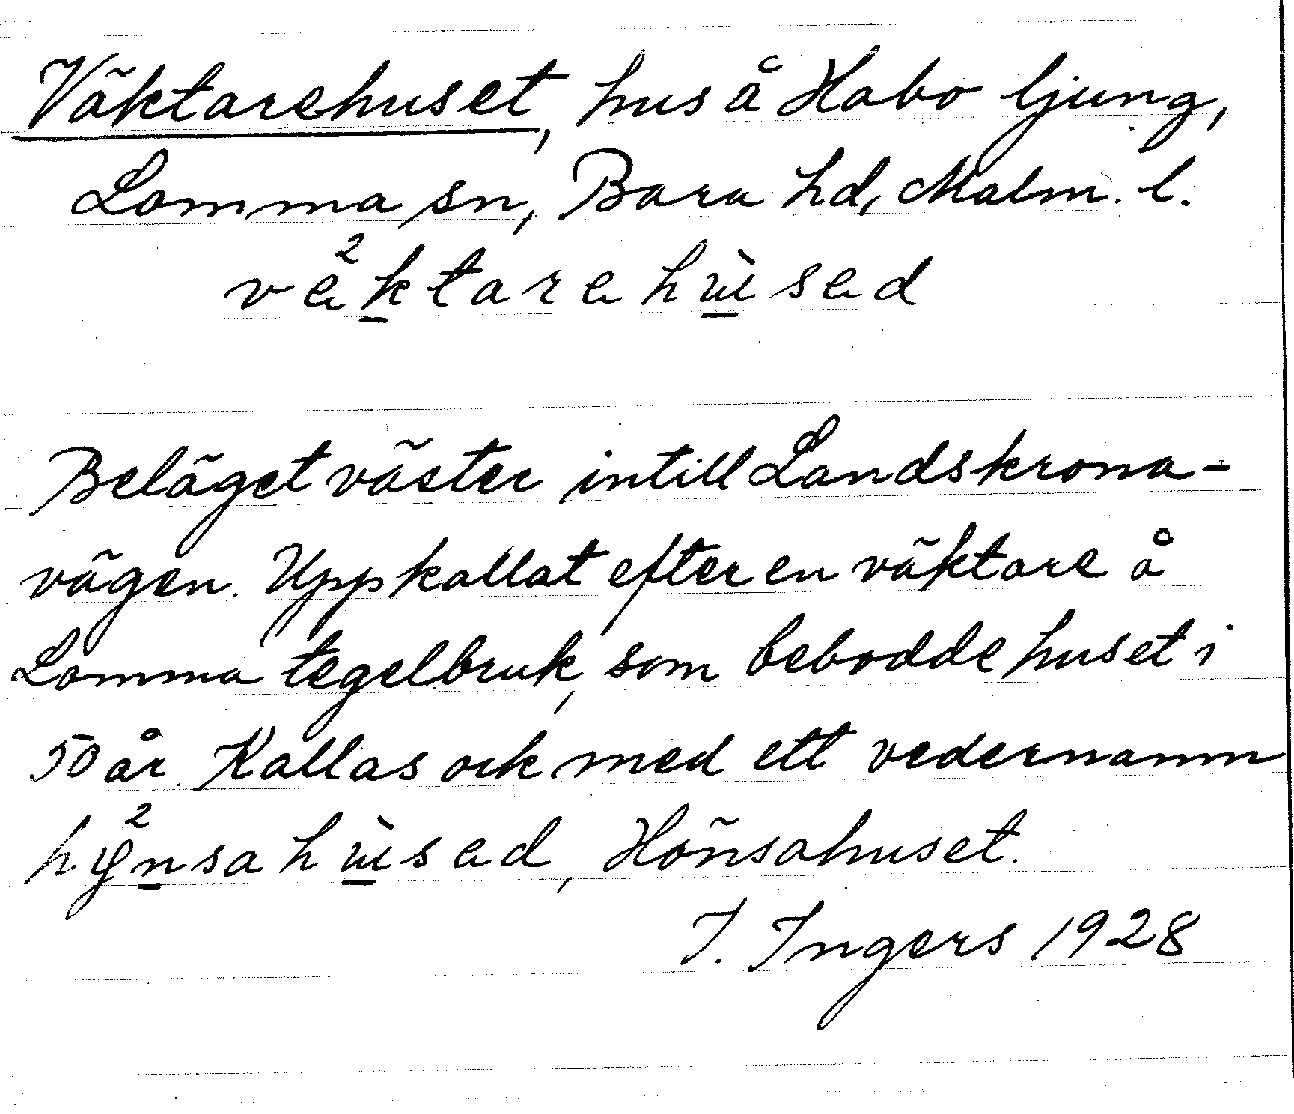 Väktarehuset, hus å Habo ljung,
Lomma sn, Bara hd, Malm. l.
väktarehusad
Beläget väster intill Landskrona-
vägen. Uppkallat efter en väktare å
Lomma tegelbruk, som bebodde huset i
50 år. Kallas ock med ett vedernamn
hynsahusad, Hönsahuset.
I. Ingers 1928